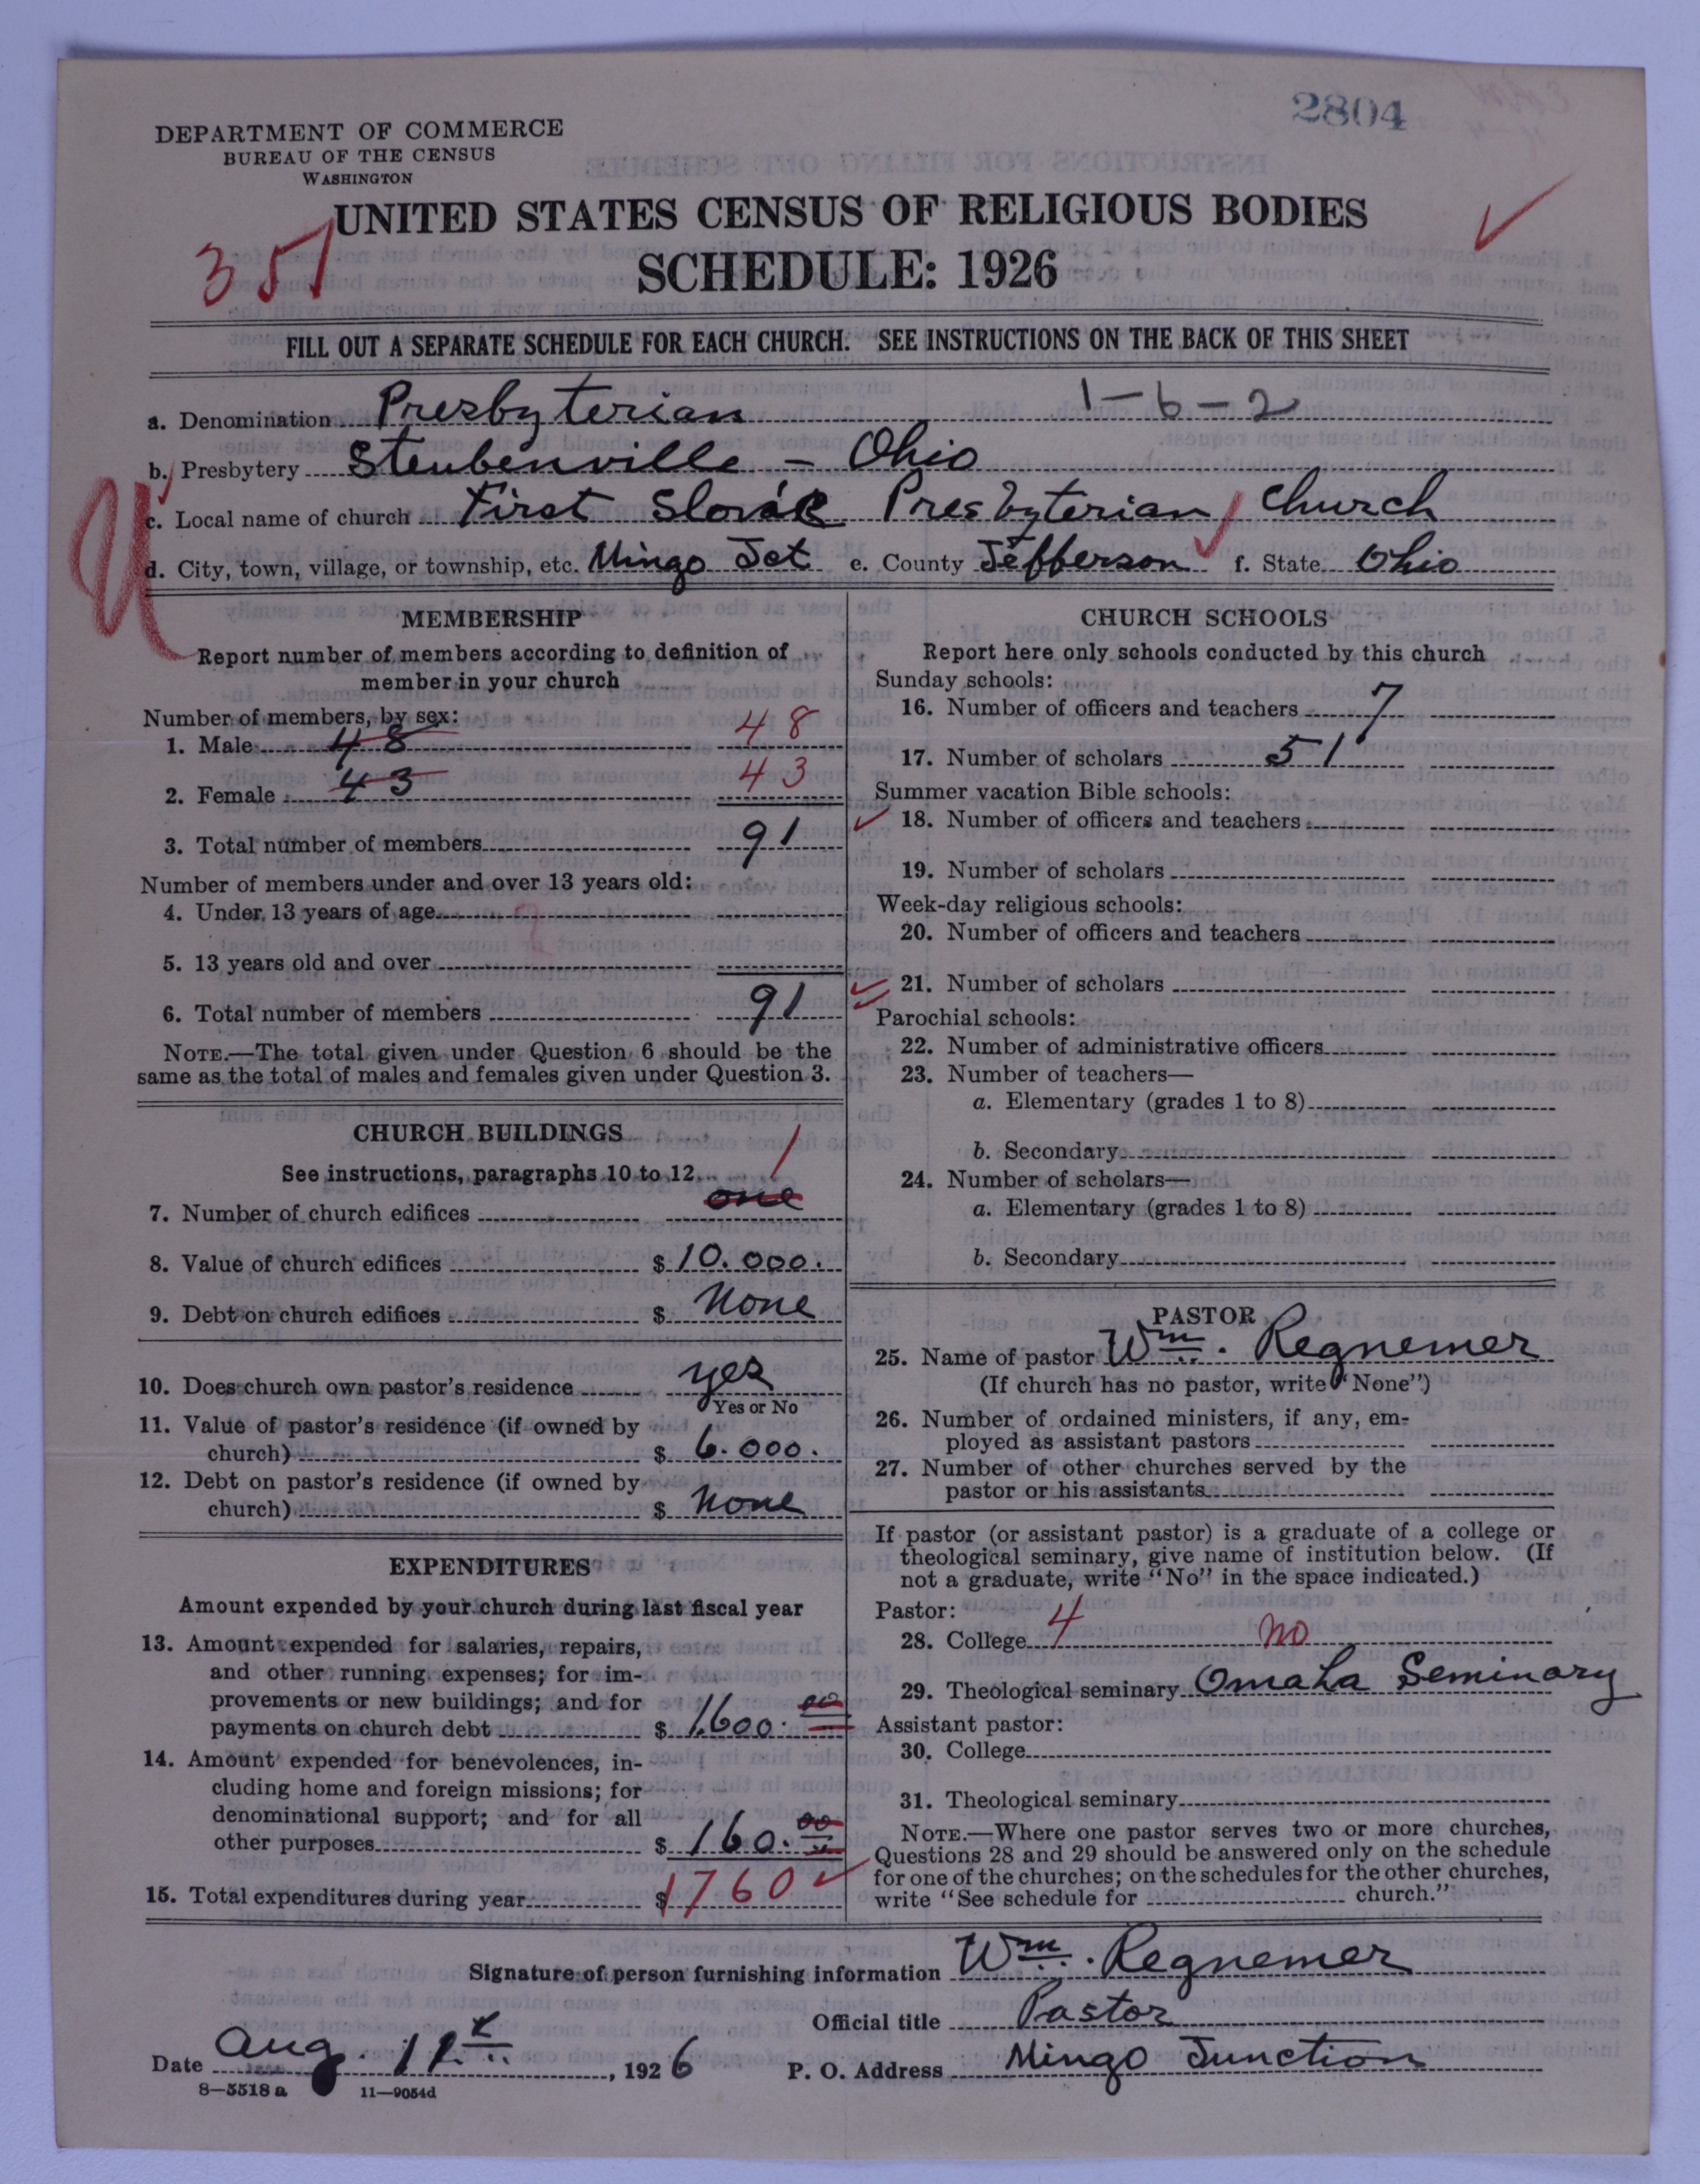 2804
DEPARTMENT OF COMMERCE
BUREAU OF THE CENSUS
WASHINGTON
UNITED STATES CENSUS OF RELIGIOUS BODIES
351
SCHEDULE: 1926
FILL OUT A SEPARATE SCHEDULE FOR EACH CHURCH. SEE INSTRUCTIONS ON THE BACK OF THIS SHEET
a. Denomination Presbyterian 1-6-2
b. Presbytery Steubenville - Ohio
c. Local name of church First Slovak Presbyterian Church
d. City, town, village, or township, etc. Mingo Jct e. County Jefferson f. State Ohio
MEMBERSHIP
Report number of members according to definition of
member in your church
Number of members, by sex:
1. Male 48 48
2. Female 43 43
3. Total number of members 91
Number of members under and over 13 years old:
4. Under 13 years of age
5. 13 years old and over
6. Total number of members 91
NOTE.—The total given under Question 6 should be the
same as the total of males and females given under Question 3.
CHURCH BUILDINGS
See instructions, paragraphs 10 to 12 1
7. Number of church edifices one
8. Value of church edifices $ 10.000.
9. Debt on church edifices $ None
10. Does church own pastor's residence yes
Yes or No
11. Value of pastor's residence (if owned by
church) $ 6.000.
12. Debt on pastor's residence (if owned by
church) $ None
EXPENDITURES
Amount expended by your church during last fiscal year
13. Amount expended for salaries, repairs,
and other running expenses; for im-
provements or new buildings; and for
payments on church debt $ 1600.00
14. Amount expended for benevolences, in-
cluding home and foreign missions; for
denominational support; and for all
other purposes $ 160.00
15. Total expenditures during year $ 1760
CHURCH SCHOOLS
Report here only schools conducted by this church
Sunday schools:
16. Number of officers and teachers 7
17. Number of scholars 51
Summer vacation Bible schools:
18. Number of officers and teachers
19. Number of scholars
Week-day religious schools:
20. Number of officers and teachers
21. Number of scholars
Parochial schools:
22. Number of administrative officers
23. Number of teachers—
a. Elementary (grades 1 to 8)
b. Secondary
24. Number of scholars—
a. Elementary (grades 1 to 8)
b. Secondary
PASTOR
25. Name of pastor Wm. Regnemer
(If church has no pastor, write "None")
26. Number of ordained ministers, if any, em-
ployed as assistant pastors
27. Number of other churches served by the
pastor or his assistants
If pastor (or assistant pastor) is a graduate of a college or
theological seminary, give name of institution below. (If
not a graduate, write "No" in the space indicated.)
Pastor:
28. College 4 no
29. Theological seminary Omaha Seminary
Assistant pastor:
30. College
31. Theological seminary
NOTE.—Where one pastor serves two or more churches,
Questions 28 and 29 should be answered only on the schedule
for one of the churches; on the schedules for the other churches,
write "See schedule for church."
Signature of person furnishing information Wm. Regnemer
Official title Pastor
Date Aug. 11, 1926 P. O. Address Mingo Junction
8—5518 a 11—9054d